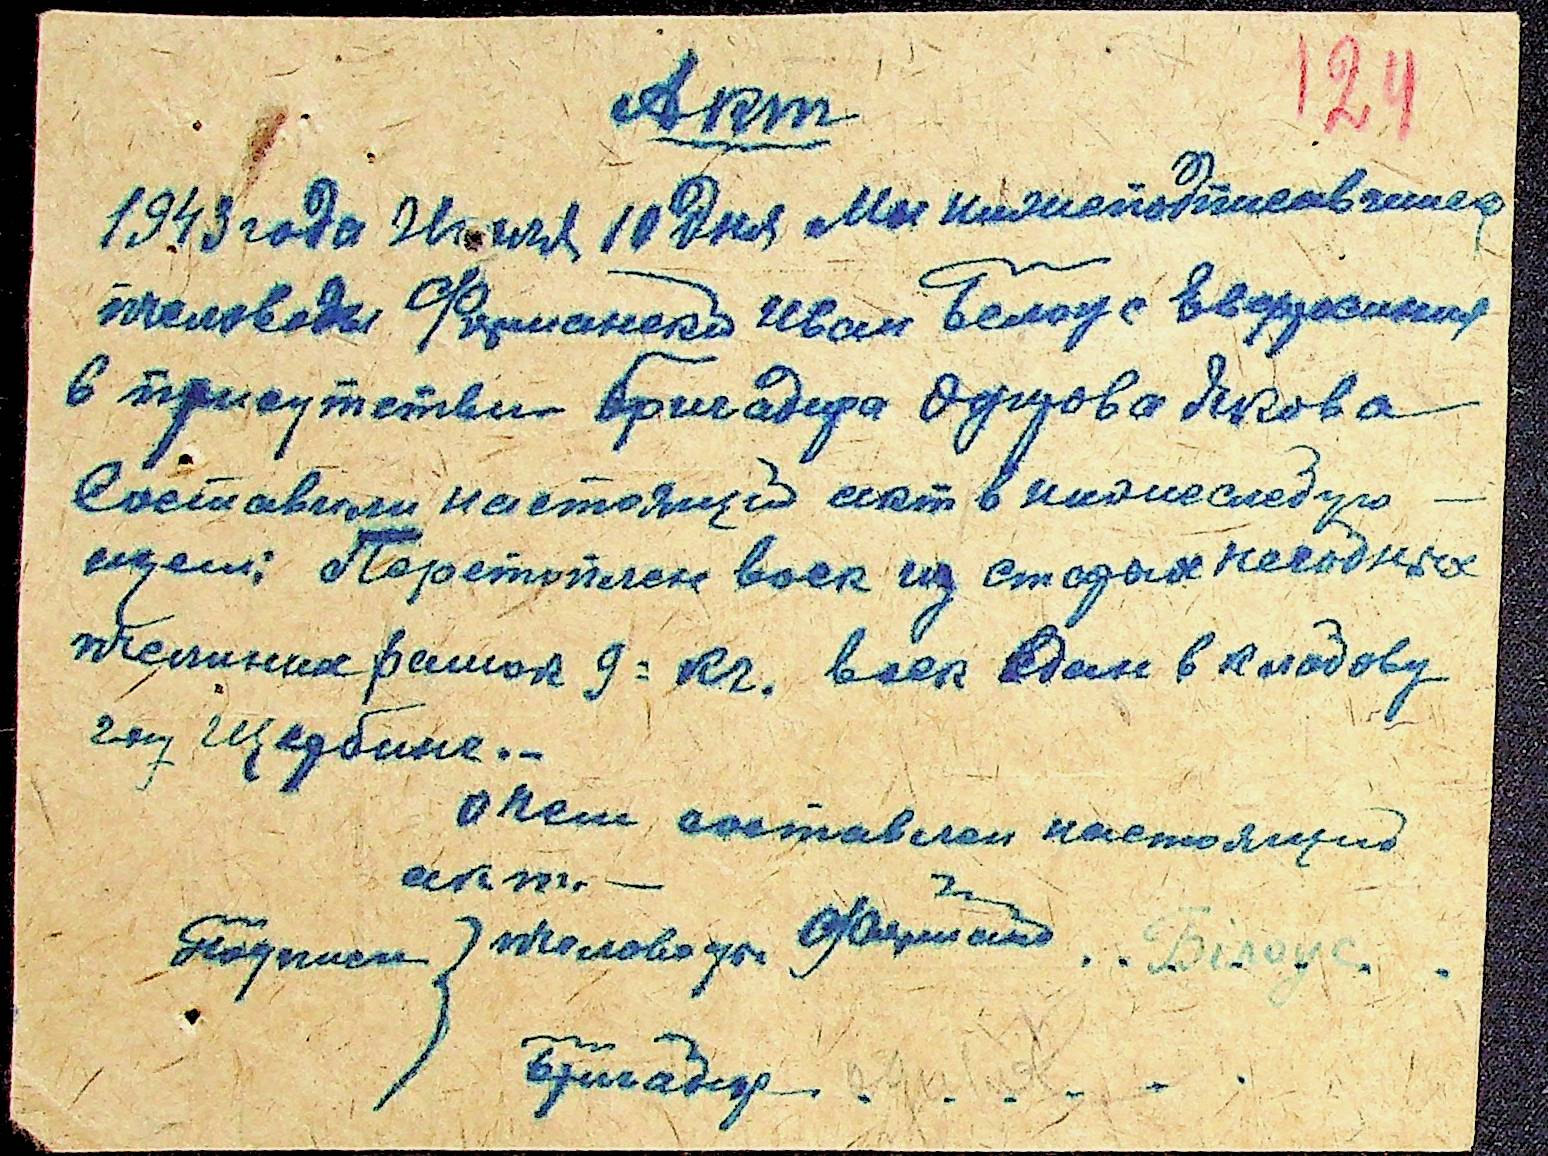 124
Акт
1943 года Июля 10 дня Мы нижеподписавшиеся
пчеловоды Иван Белоус
в присутствии бригадира Якова
Составили настоящий акт в нижеследую-
щем: Перетоплен воск из старых негодных
пчелиних рамок 9= кг. воск сдан в кладову
Щербине.-
о чем составлен настоящий
акт. —
Подписи } пчеловоды . . Білоус .
бригадир . . . . .